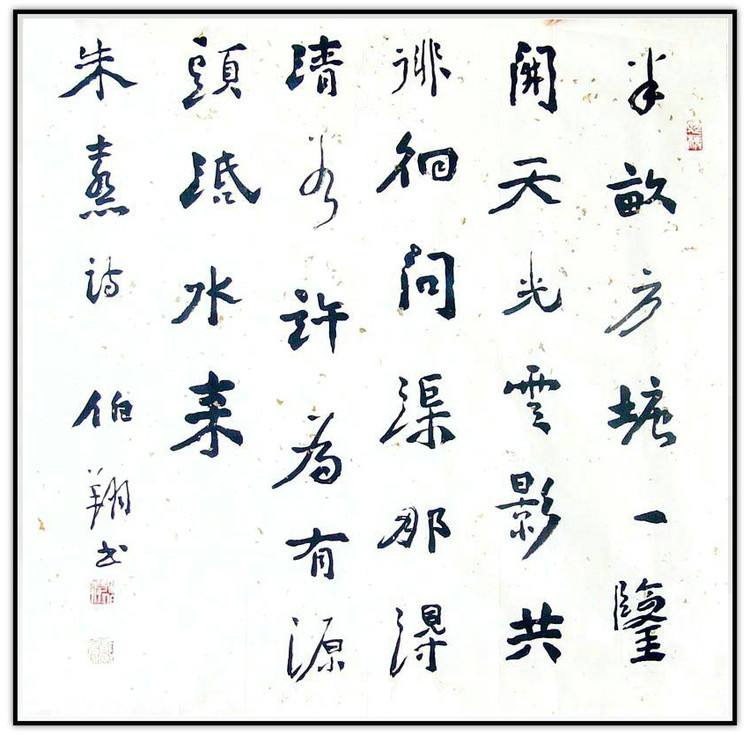 半畝方塘一鑒
開天光雲影共
徘徊問渠那得
清如許為有源
頭活水来
朱熹詩 伯翔书